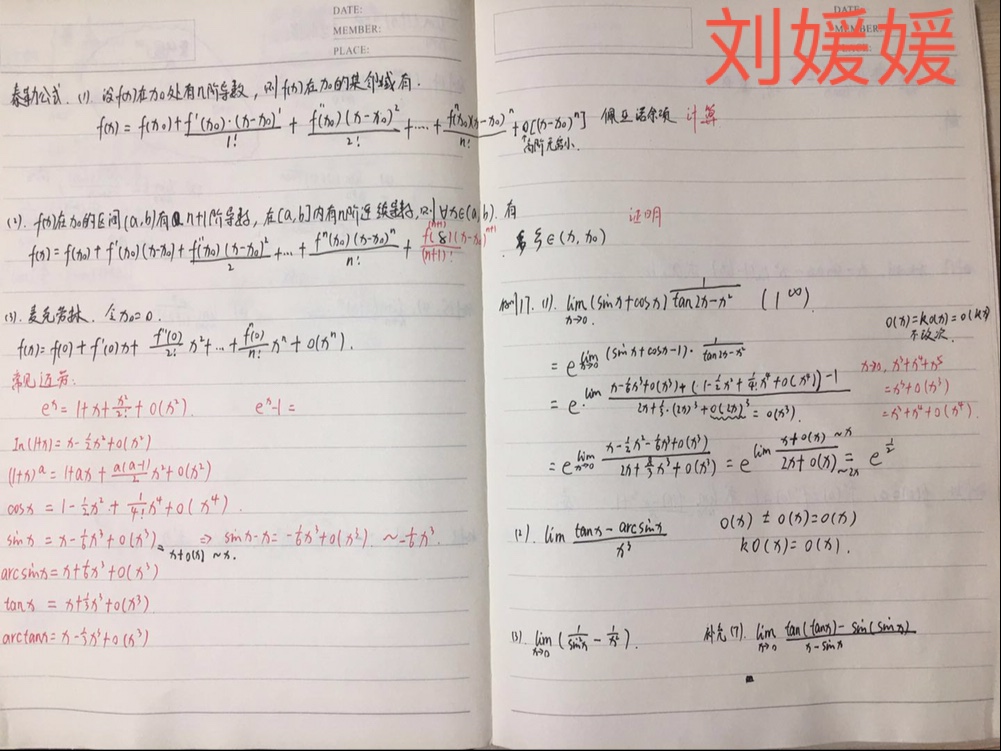 DATE:
MEMBER:
PLACE:
泰勒公式. (1) 设f(x)在x₀处有n阶导数, 则f(x)在x₀的某邻域有.
f(x) = f(x₀) + f'(x₀)·(x-x₀)/1! + f''(x₀)(x-x₀)²/2! + … + fⁿ(x₀)(x-x₀)ⁿ/n! + o[(x-x₀)ⁿ] 佩亚诺余项 计算
高阶无穷小.
(2). f(x)在x₀的区间(a,b)有n+1阶导数, 在[a,b]内有n阶连续导数, 则∀x∈(a,b). 有
f(x) = f(x₀) + f'(x₀)(x-x₀) + f''(x₀)(x-x₀)²/2 + … + fⁿ(x₀)(x-x₀)ⁿ/n! + f⁽ⁿ⁺¹⁾(ξ)(x-x₀)ⁿ⁺¹/(n+1)!
(3). 麦克劳林. 令x₀=0.
f(x) = f(0) + f'(0)x + f''(0)/2! x² + … + fⁿ(0)/n! xⁿ + o(xⁿ).
常见迈劳:
eˣ = 1+x+x²/2!+o(x²). eˣ-1=
ln(1+x) = x-½x²+o(x²)
(1+x)ᵃ = 1+ax+a(a-1)/2 x²+o(x²)
cosx = 1-½x²+1/4! x⁴+o(x⁴).
sinx = x-⅙x³+o(x³) = x+o(x) ~x. ⇒ sinx-x = -⅙x³+o(x³). ~-⅙x³.
arcsinx = x+⅙x³+o(x³)
tanx = x+⅓x³+o(x³)
arctanx = x-⅓x³+o(x³)
DATE:
MEMBER:
PLACE:
刘媛媛
证明
ξ∈(x, x₀)
例17. (1). lim x→0. (sinx+cosx)^(1/(tan2x-x²)) (1^∞)
= e^(lim x→0 (sinx+cosx-1)·1/(tan2x-x²))
= e^(lim (x-⅙x³+o(x³)+(1-½x²+1/4! x⁴+o(x⁴))-1)/(2x+⅓·(2x)³+o(2x)³)) = o(x³).
= e^(lim x→0 (x-½x²-⅙x³+o(x³))/(2x+8/3 x³+o(x³))) = e^(lim (x+o(x) ~x)/(2x+o(x) ~2x)) = e^½
o(x)=ko(x)=o(kx)
不改次.
x→0, x³+x⁴+x⁵
=x³+o(x³)
=x³+x⁴+o(x⁴).
(2). lim (tanx-arcsinx)/x³
o(x)±o(x)=o(x)
ko(x)=o(x).
(3). lim x→0 (1/sin²x - 1/x²).
补充(7). lim x→0 (tan(tanx)-sin(sinx))/(x-sinx)